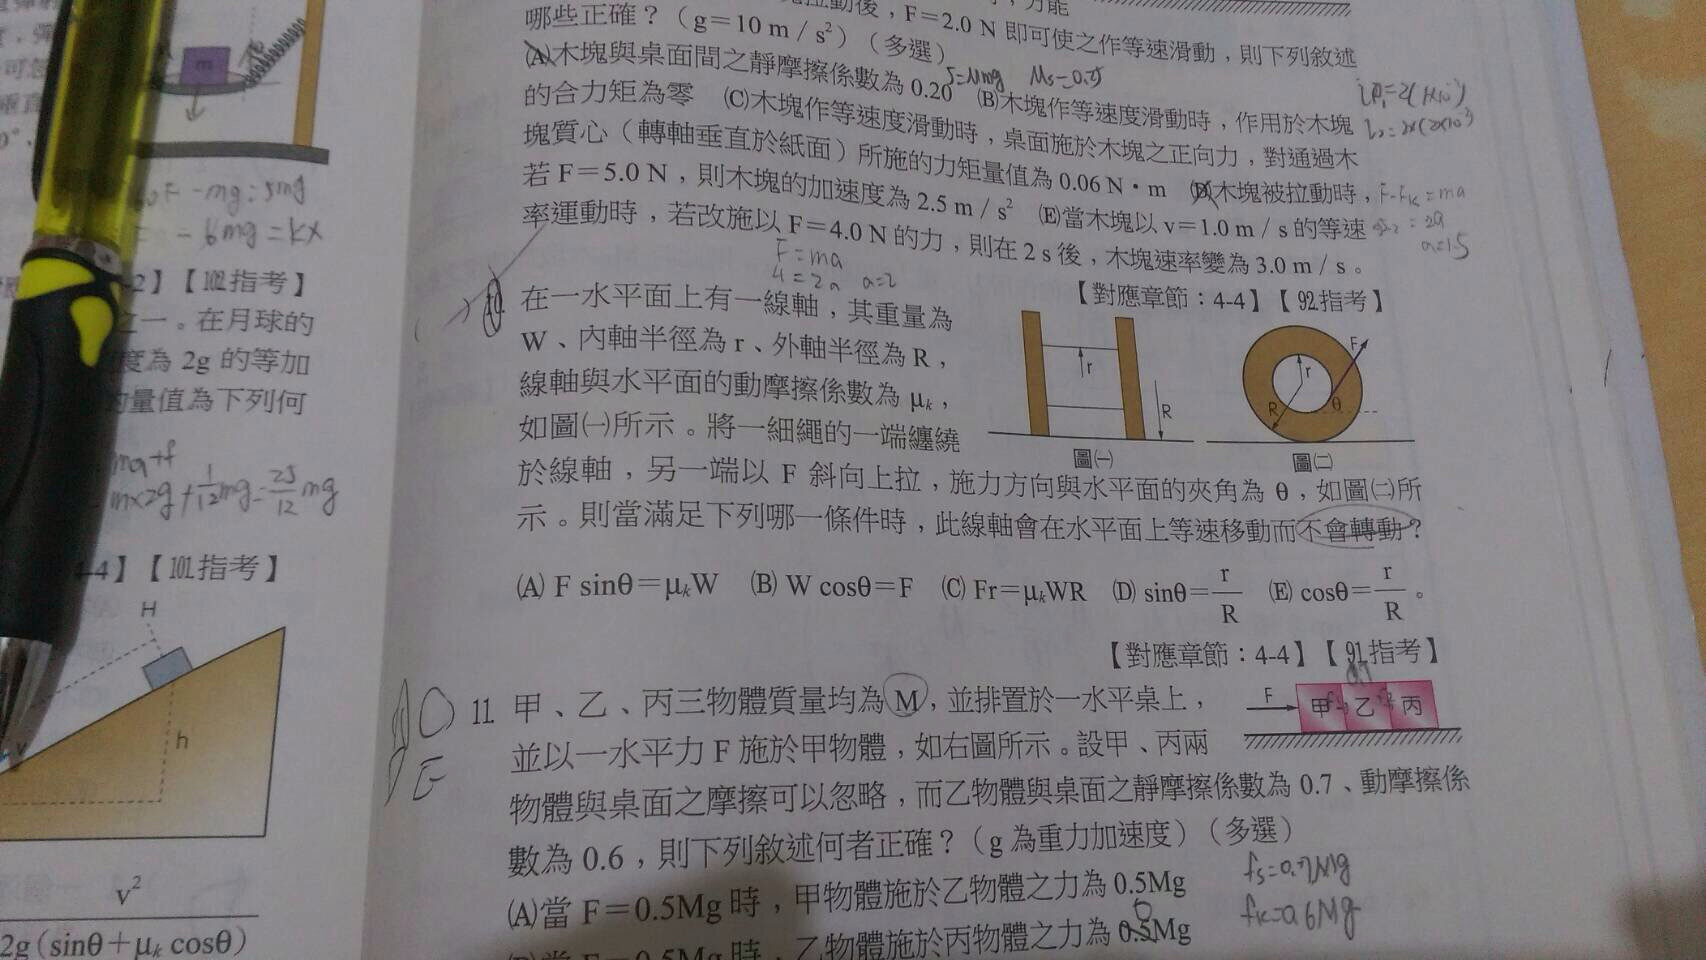 拉動後，F＝2.0 N 即可使之作等速滑動，則下列敘述
哪些正確？（g＝10 m／s²）（多選）
(A)木塊與桌面間之靜摩擦係數為 0.20 (B)木塊作等速度滑動時，作用於木塊
的合力矩為零 (C)木塊作等速度滑動時，桌面施於木塊之正向力，對通過木
塊質心（轉軸垂直於紙面）所施的力矩量值為 0.06 N·m (D)木塊被拉動時，F-Fk=ma
若 F＝5.0 N，則木塊的加速度為 2.5 m／s² (E)當木塊以 v＝1.0 m／s 的等速
a=1.5
率運動時，若改施以 F＝4.0 N 的力，則在 2 s 後，木塊速率變為 3.0 m／s。
F=ma
4=2a a=2
【對應章節：4-4】【92指考】
10. 在一水平面上有一線軸，其重量為
W、內軸半徑為 r、外軸半徑為 R，
線軸與水平面的動摩擦係數為 μk，
如圖㈠所示。將一細繩的一端纏繞
於線軸，另一端以 F 斜向上拉，施力方向與水平面的夾角為 θ，如圖㈡所
示。則當滿足下列哪一條件時，此線軸會在水平面上等速移動而不會轉動？
r
R
圖㈠
F
r
R
θ
圖㈡
(A) F sinθ＝μkW (B) W cosθ＝F (C) Fr＝μkWR (D) sinθ＝r/R (E) cosθ＝r/R。
【對應章節：4-4】【91指考】
11. 甲、乙、丙三物體質量均為 M，並排置於一水平桌上，
並以一水平力 F 施於甲物體，如右圖所示。設甲、丙兩
物體與桌面之摩擦可以忽略，而乙物體與桌面之靜摩擦係數為 0.7、動摩擦係
數為 0.6，則下列敘述何者正確？（g 為重力加速度）（多選）
(A)當 F＝0.5Mg 時，甲物體施於乙物體之力為 0.5Mg
(B)當 F＝0.5Mg 時，乙物體施於丙物體之力為 0.5Mg
F
甲 乙 丙
fs=0.7Mg
fk=0.6Mg
m
-6mg=kx
-2】【102指考】
之一。在月球的
度為 2g 的等加
的量值為下列何
ma+f
m×2g+1/12mg=25/12mg
4-4】【101指考】
H
h
v
v²
2g(sinθ＋μk cosθ)